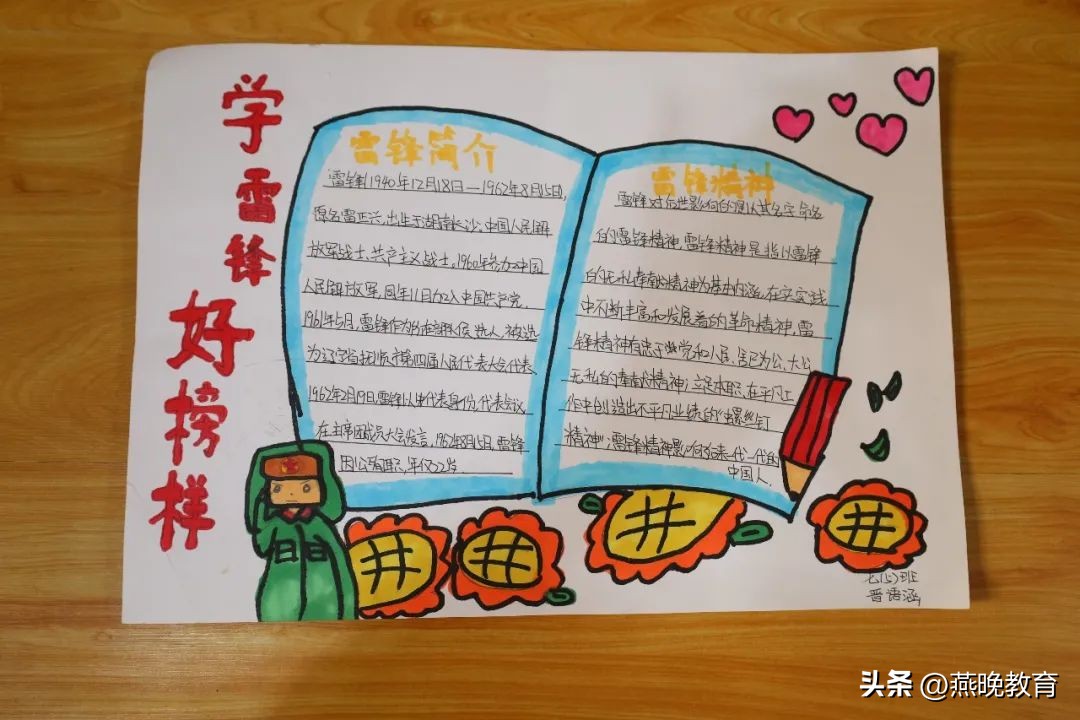 学雷锋好榜样
雷锋简介
雷锋(1940年12月18日—1962年8月15日,
原名雷正兴,出生于湖南长沙,中国人民解
放军战士、共产主义战士。1960年参加中国
人民解放军,同年11月加入中国共产党.
1961年5月,雷锋作为所在部队候选人,被选
为辽宁省抚顺市第四届人民代表大会代表、
1962年2月19日,雷锋以代表身份,代表会议
在主席团成员大会发言,1962年8月15日,雷锋
因公殉职,年仅22岁.
雷锋精神
雷锋对后世影响的是以其名字命名
的雷锋精神,雷锋精神是指以雷锋
的无私奉献精神为基本内涵,在实践
中不断丰富和发展着的革命精神,雷
锋精神有忠于党和人民、舍己为公、大公
无私的奉献精神;立足本职、在平凡工
作中创造出不平凡业绩的“螺丝钉
精神”;雷锋精神影响着一代一代的
中国人.
班
晋语涵
头条 @燕晚教育